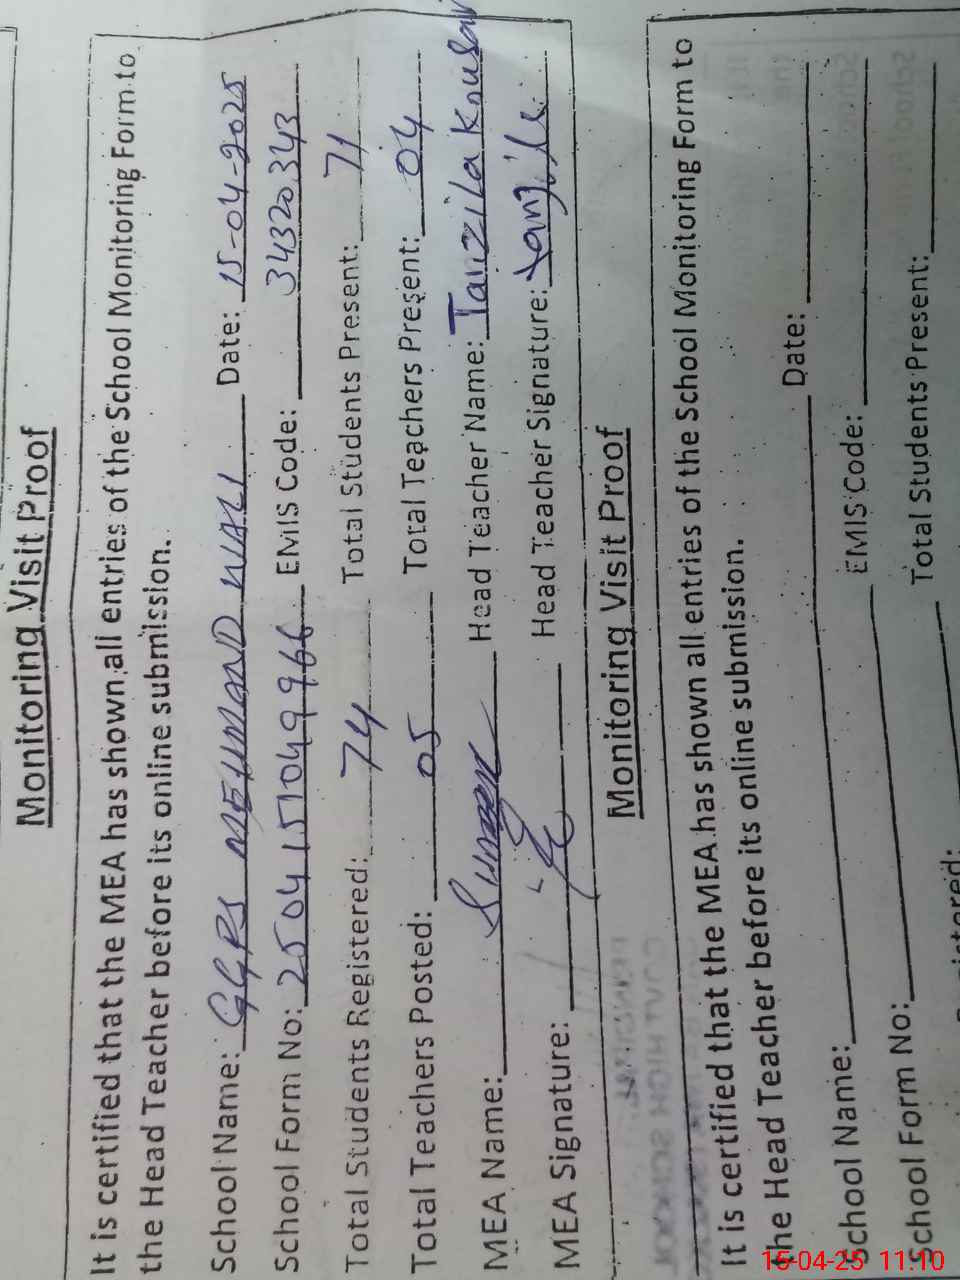 Monitoring Visit Proof
It is certified that the MEA has shown all entries of the School Monitoring Form to
the Head Teacher before its online submission.
School Name: GGPS MEHMAND WALI Date: 15-04-2025
School Form No: 2504151049966 EMIS Code: 34320343
Total Students Registered: 74 Total Students Present: 71
Total Teachers Posted: 05 Total Teachers Present: 04
MEA Name: Head Teacher Name: Tanzila Kousar
MEA Signature: Head Teacher Signature: Tanzila
Monitoring Visit Proof
It is certified that the MEA has shown all entries of the School Monitoring Form to
the Head Teacher before its online submission.
School Name: Date:
School Form No: EMIS Code:
Total Students Present:
15-04-25 11:10